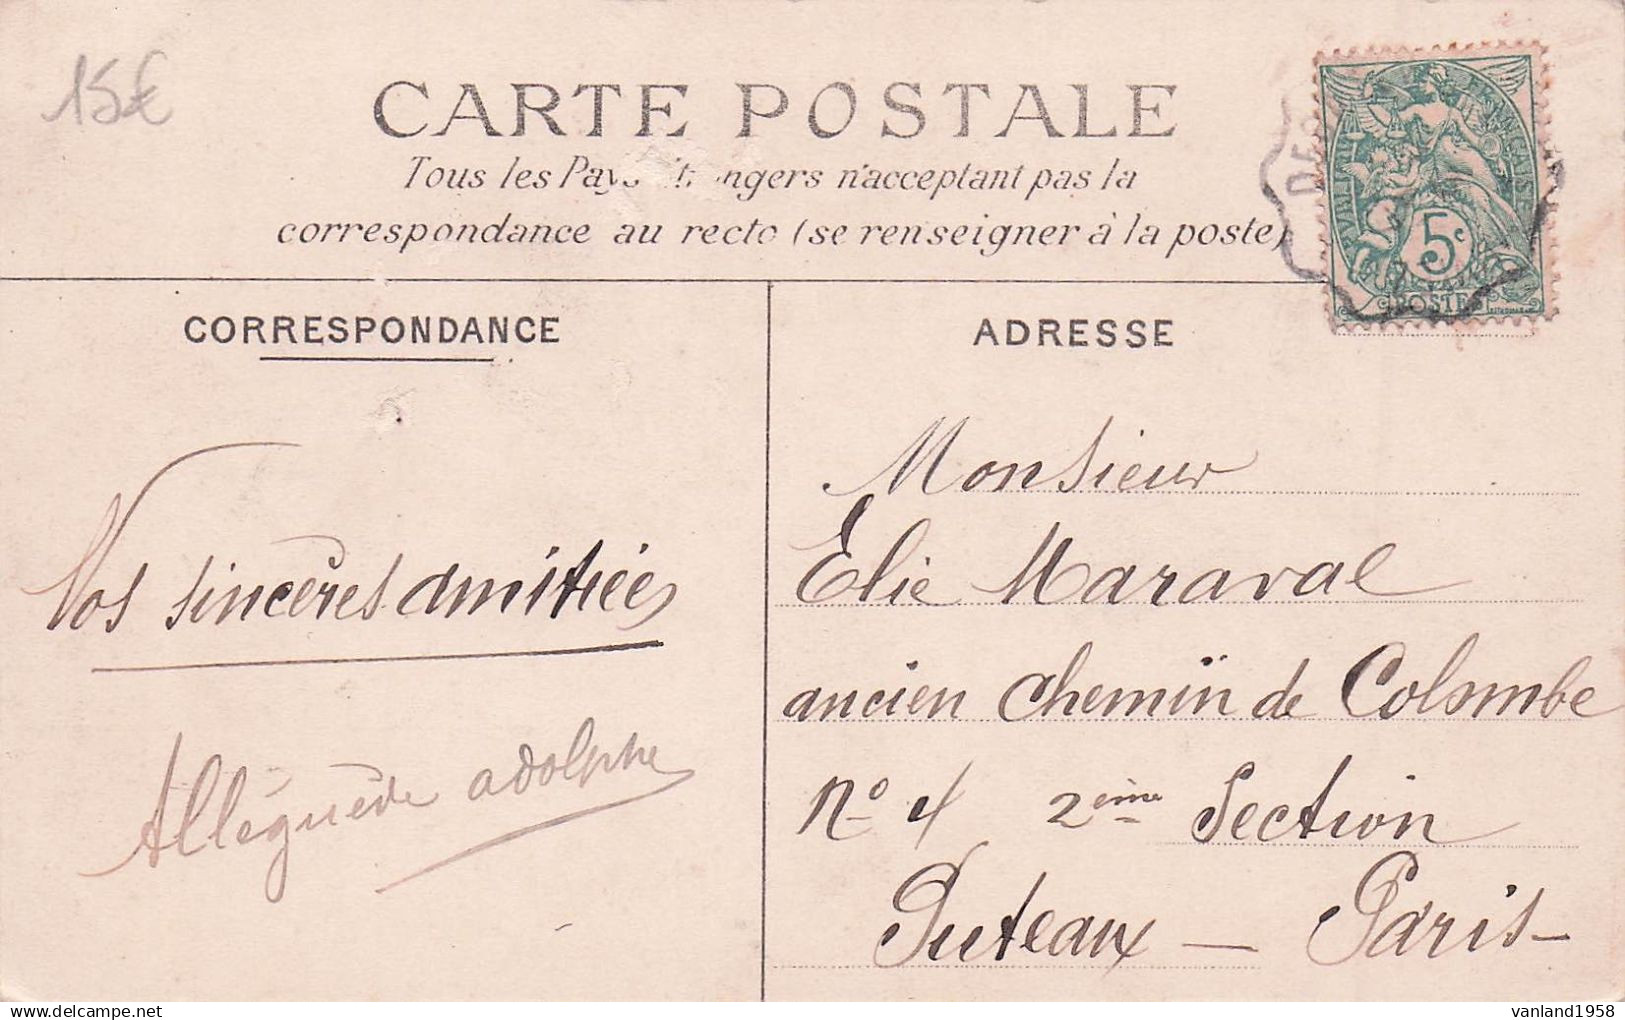 15€
CARTE POSTALE
Tous les Pays étrangers n'acceptant pas la
correspondance au recto (se renseigner à la poste)
RÉPUBLIQUE FRANÇAISE
5c
POSTES
DE
CORRESPONDANCE
ADRESSE
Vos sincères amitiées
Alléguède adolphe
Monsieur
Elie Maraval
ancien chemin de Colombe
No 4 2ème Section
Puteaux — Paris —
delcampe.net
vanland1958